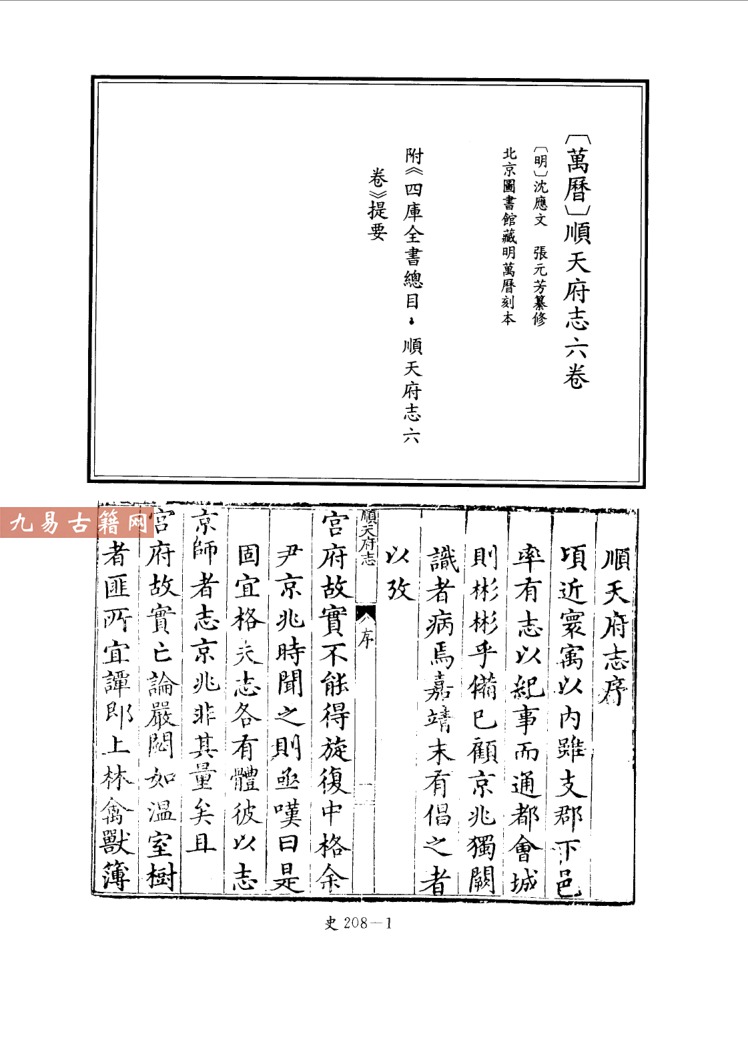 〔萬曆〕順天府志六卷
〔明〕沈應文　張元芳纂修
北京圖書館藏明萬曆刻本
附《四庫全書總目·順天府志六
卷》提要
順天府志序
項近寰寓以内雖支郡下邑
率有志以紀事而通都會城
則彬彬乎備已顧京兆獨闕
識者病焉嘉靖末有倡之者
以攷
順天府志
序
一
宫府故實不能得旋復中格余
尹京兆時聞之則亟嘆曰是
固宜格夫志各有體彼以志
京師者志京兆非其量矣且
宫府故實亡論嚴閟如溫室樹
者匪所宜譚即上林禽獸簿
九易古籍网
史 208—1